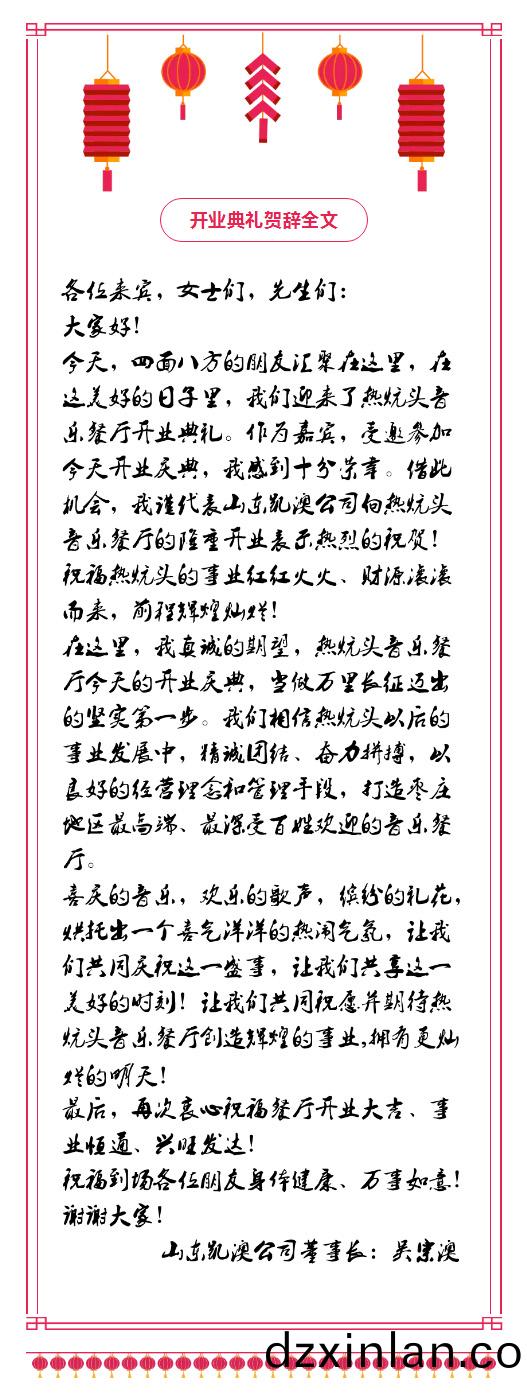 开业典礼贺辞全文
各位来宾，女士们，先生们：
大家好！
今天，四面八方的朋友汇聚在这里，在
这美好的日子里，我们迎来了热炕头音
乐餐厅开业典礼。作为嘉宾，受邀参加
今天开业庆典，我感到十分荣幸。借此
机会，我谨代表山东凯澳公司向热炕头
音乐餐厅的隆重开业表示热烈的祝贺！
祝福热炕头的事业红红火火、财源滚滚
而来，前程辉煌灿烂！
在这里，我真诚的期望，热炕头音乐餐
厅今天的开业庆典，当做万里长征迈出
的坚实第一步。我们相信热炕头以后的
事业发展中，精诚团结、奋力拼搏，以
良好的经营理念和管理手段，打造枣庄
地区最高端、最深受百姓欢迎的音乐餐
厅。
喜庆的音乐，欢乐的歌声，缤纷的礼花，
烘托出一个喜气洋洋的热闹气氛，让我
们共同庆祝这一盛事，让我们共享这一
美好的时刻！让我们共同祝愿并期待热
炕头音乐餐厅创造辉煌的事业,拥有更灿
烂的明天！
最后，再次衷心祝福餐厅开业大吉、事
业恒通、兴旺发达！
祝福到场各位朋友身体健康、万事如意！
谢谢大家！
山东凯澳公司董事长：吴宗澳
dzxinlan.co